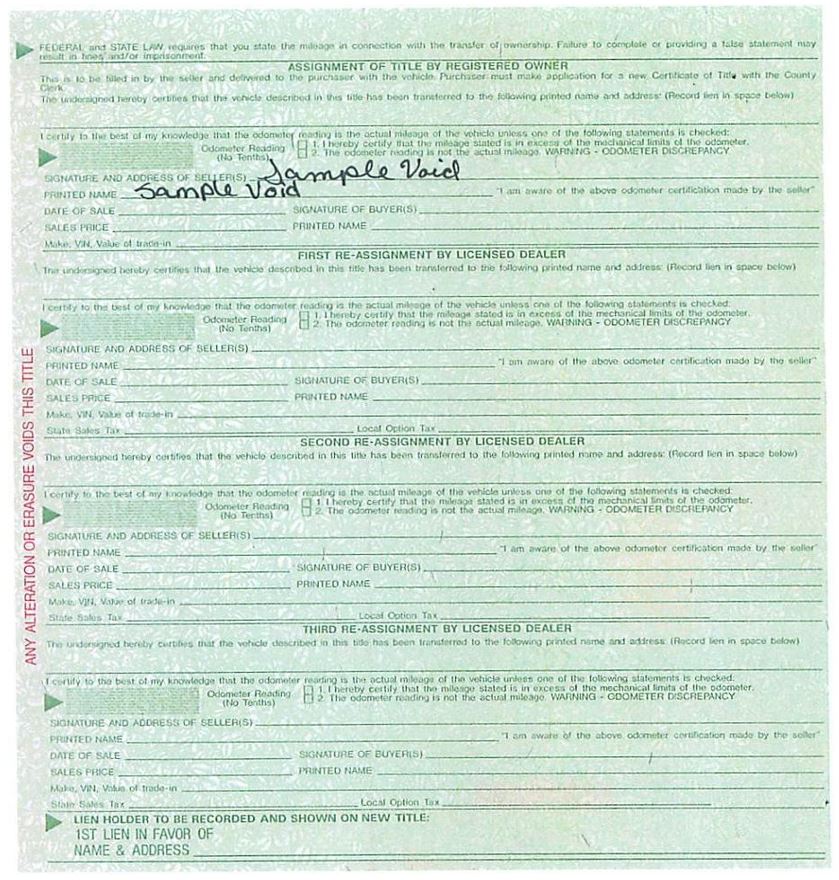 FEDERAL and STATE LAW requires that you state the mileage in connection with the transfer of ownership. Failure to complete or providing a false statement may
result in fines and/or imprisonment.
ASSIGNMENT OF TITLE BY REGISTERED OWNER
This is to be filled in by the seller and delivered to the purchaser with the vehicle. Purchaser must make application for a new Certificate of Title with the County
Clerk.
The undersigned hereby certifies that the vehicle described in this title has been transferred to the following printed name and address: (Record lien in space below)
I certify to the best of my knowledge that the odometer reading is the actual mileage of the vehicle unless one of the following statements is checked:
Odometer Reading 1. I hereby certify that the mileage stated is in excess of the mechanical limits of the odometer.
(No Tenths) 2. The odometer reading is not the actual mileage. WARNING - ODOMETER DISCREPANCY
SIGNATURE AND ADDRESS OF SELLER(S) Sample Void
PRINTED NAME Sample Void "I am aware of the above odometer certification made by the seller"
DATE OF SALE SIGNATURE OF BUYER(S)
SALES PRICE PRINTED NAME
Make, VIN, Value of trade-in
FIRST RE-ASSIGNMENT BY LICENSED DEALER
The undersigned hereby certifies that the vehicle described in this title has been transferred to the following printed name and address: (Record lien in space below)
I certify to the best of my knowledge that the odometer reading is the actual mileage of the vehicle unless one of the following statements is checked:
Odometer Reading 1. I hereby certify that the mileage stated is in excess of the mechanical limits of the odometer.
(No Tenths) 2. The odometer reading is not the actual mileage. WARNING - ODOMETER DISCREPANCY
SIGNATURE AND ADDRESS OF SELLER(S)
PRINTED NAME "I am aware of the above odometer certification made by the seller"
DATE OF SALE SIGNATURE OF BUYER(S)
SALES PRICE PRINTED NAME
Make, VIN, Value of trade-in
State Sales Tax Local Option Tax
SECOND RE-ASSIGNMENT BY LICENSED DEALER
The undersigned hereby certifies that the vehicle described in this title has been transferred to the following printed name and address: (Record lien in space below)
I certify to the best of my knowledge that the odometer reading is the actual mileage of the vehicle unless one of the following statements is checked:
Odometer Reading 1. I hereby certify that the mileage stated is in excess of the mechanical limits of the odometer.
(No Tenths) 2. The odometer reading is not the actual mileage. WARNING - ODOMETER DISCREPANCY
SIGNATURE AND ADDRESS OF SELLER(S)
PRINTED NAME "I am aware of the above odometer certification made by the seller"
DATE OF SALE SIGNATURE OF BUYER(S)
SALES PRICE PRINTED NAME
Make, VIN, Value of trade-in
State Sales Tax Local Option Tax
THIRD RE-ASSIGNMENT BY LICENSED DEALER
The undersigned hereby certifies that the vehicle described in this title has been transferred to the following printed name and address: (Record lien in space below)
I certify to the best of my knowledge that the odometer reading is the actual mileage of the vehicle unless one of the following statements is checked:
Odometer Reading 1. I hereby certify that the mileage stated is in excess of the mechanical limits of the odometer.
(No Tenths) 2. The odometer reading is not the actual mileage. WARNING - ODOMETER DISCREPANCY
SIGNATURE AND ADDRESS OF SELLER(S)
PRINTED NAME "I am aware of the above odometer certification made by the seller"
DATE OF SALE SIGNATURE OF BUYER(S)
SALES PRICE PRINTED NAME
Make, VIN, Value of trade-in
State Sales Tax Local Option Tax
LIEN HOLDER TO BE RECORDED AND SHOWN ON NEW TITLE:
1ST LIEN IN FAVOR OF
NAME & ADDRESS
ANY ALTERATION OR ERASURE VOIDS THIS TITLE